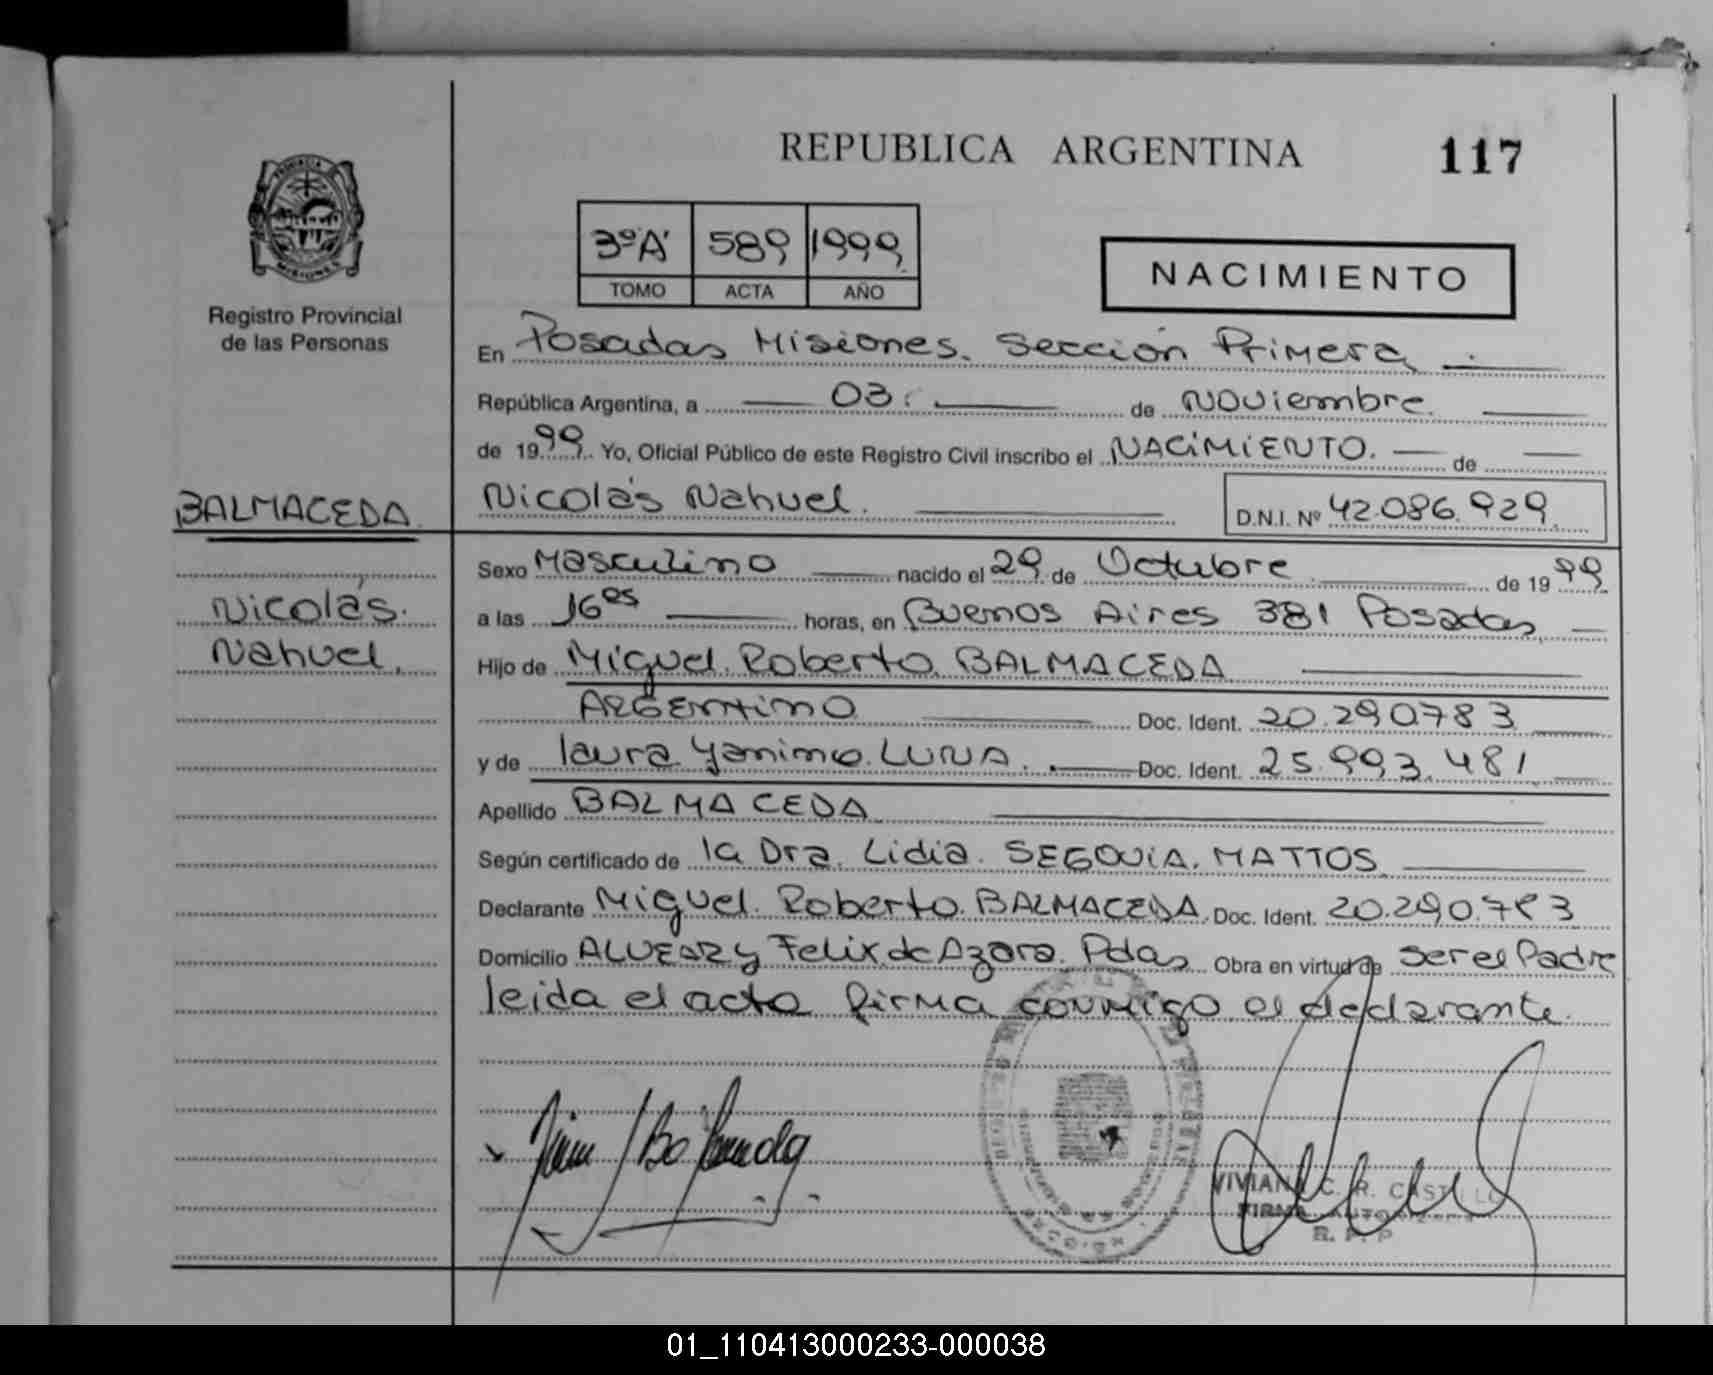 REPUBLICA ARGENTINA 117
PROVINCIA
MISIONES
Registro Provincial
de las Personas
3º"A" 589 1999
TOMO ACTA AÑO
NACIMIENTO
En Posadas Misiones. Sección Primera
República Argentina, a 03 de Noviembre
de 1999. Yo, Oficial Público de este Registro Civil inscribo el NACIMIENTO. de
BALMACEDA
Nicolás Nahuel. D.N.I. Nº 42.086.929
Nicolás
Nahuel.
Sexo Masculino nacido el 29 de Octubre de 1999
a las 16 es horas, en Buenos Aires 381 Posadas
Hijo de Miguel Roberto BALMACEDA
ARGENTINO Doc. Ident. 20.290.783
y de Laura Yanina LUNA. Doc. Ident. 25.993.481
Apellido BALMACEDA
Según certificado de la Dra. Lidia SEGOVIA MATTOS
Declarante Miguel Roberto BALMACEDA Doc. Ident. 20.290.783
Domicilio ALVEAR y Felix de Azara. Pdas Obra en virtud de ser el Padre
leida el acta firma conmigo el declarante.
VIVIANA C. R. CASTILLO
FIRMA AUTORIZADA
R. P. P
01_110413000233-000038